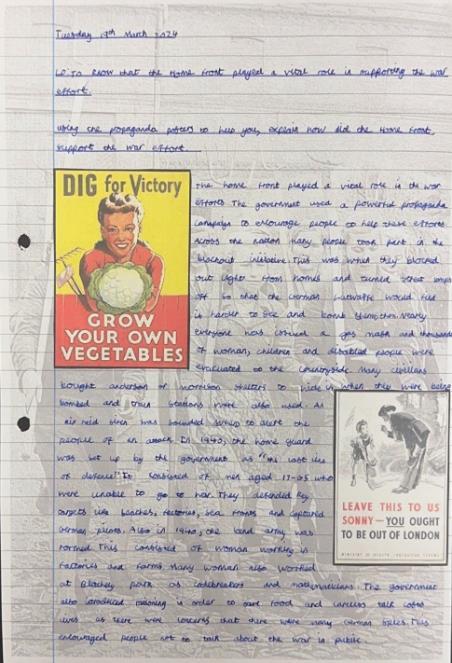 Tuesday 19th March 2024
LO: To know that the Home Front played a vital role in supporting the war
effort.
Using the propaganda posters to help you, explain how did the Home Front
support the war effort.
DIG for Victory
GROW
YOUR OWN
VEGETABLES
The home front played a vital role in the war
efforts. The government used a powerful propaganda
campaign to encourage people to help these efforts
across the nation many people took part in the
blackout initiative. This was when they blocked
out light from homes and turned street lamps
off so that the German Luftwaffe would find
it harder to see and bomb them. Nearly
everyone has carried a gas mask and thousands
of woman, children and disabled people were
evacuated to the countryside. Many civilians
bought anderson or morrison shelters to hide in when they were being
bombed and train stations were also used. An
air raid siren was sounded to alert the
people of an attack. In 1940, the home guard
was set up by the government as "the last line
of defence". It consisted of men aged 17-65 who
were unable to go to war. They defended key
targets like beaches, factories, sea fronts and captured
German pilots. Also in 1940, the land army was
formed. This consisted of woman working in
factories and farms. Many woman also worked
at Bletchley park as codebreakers and mathematicians. The government
also introduced rationing in order to save food and careless talk costs
lives as there were concerns that there were many German spies. This
encouraged people not to talk about the war in public.
LEAVE THIS TO US
SONNY — YOU OUGHT
TO BE OUT OF LONDON
MINISTRY OF HEALTH EVACUATION SCHEME